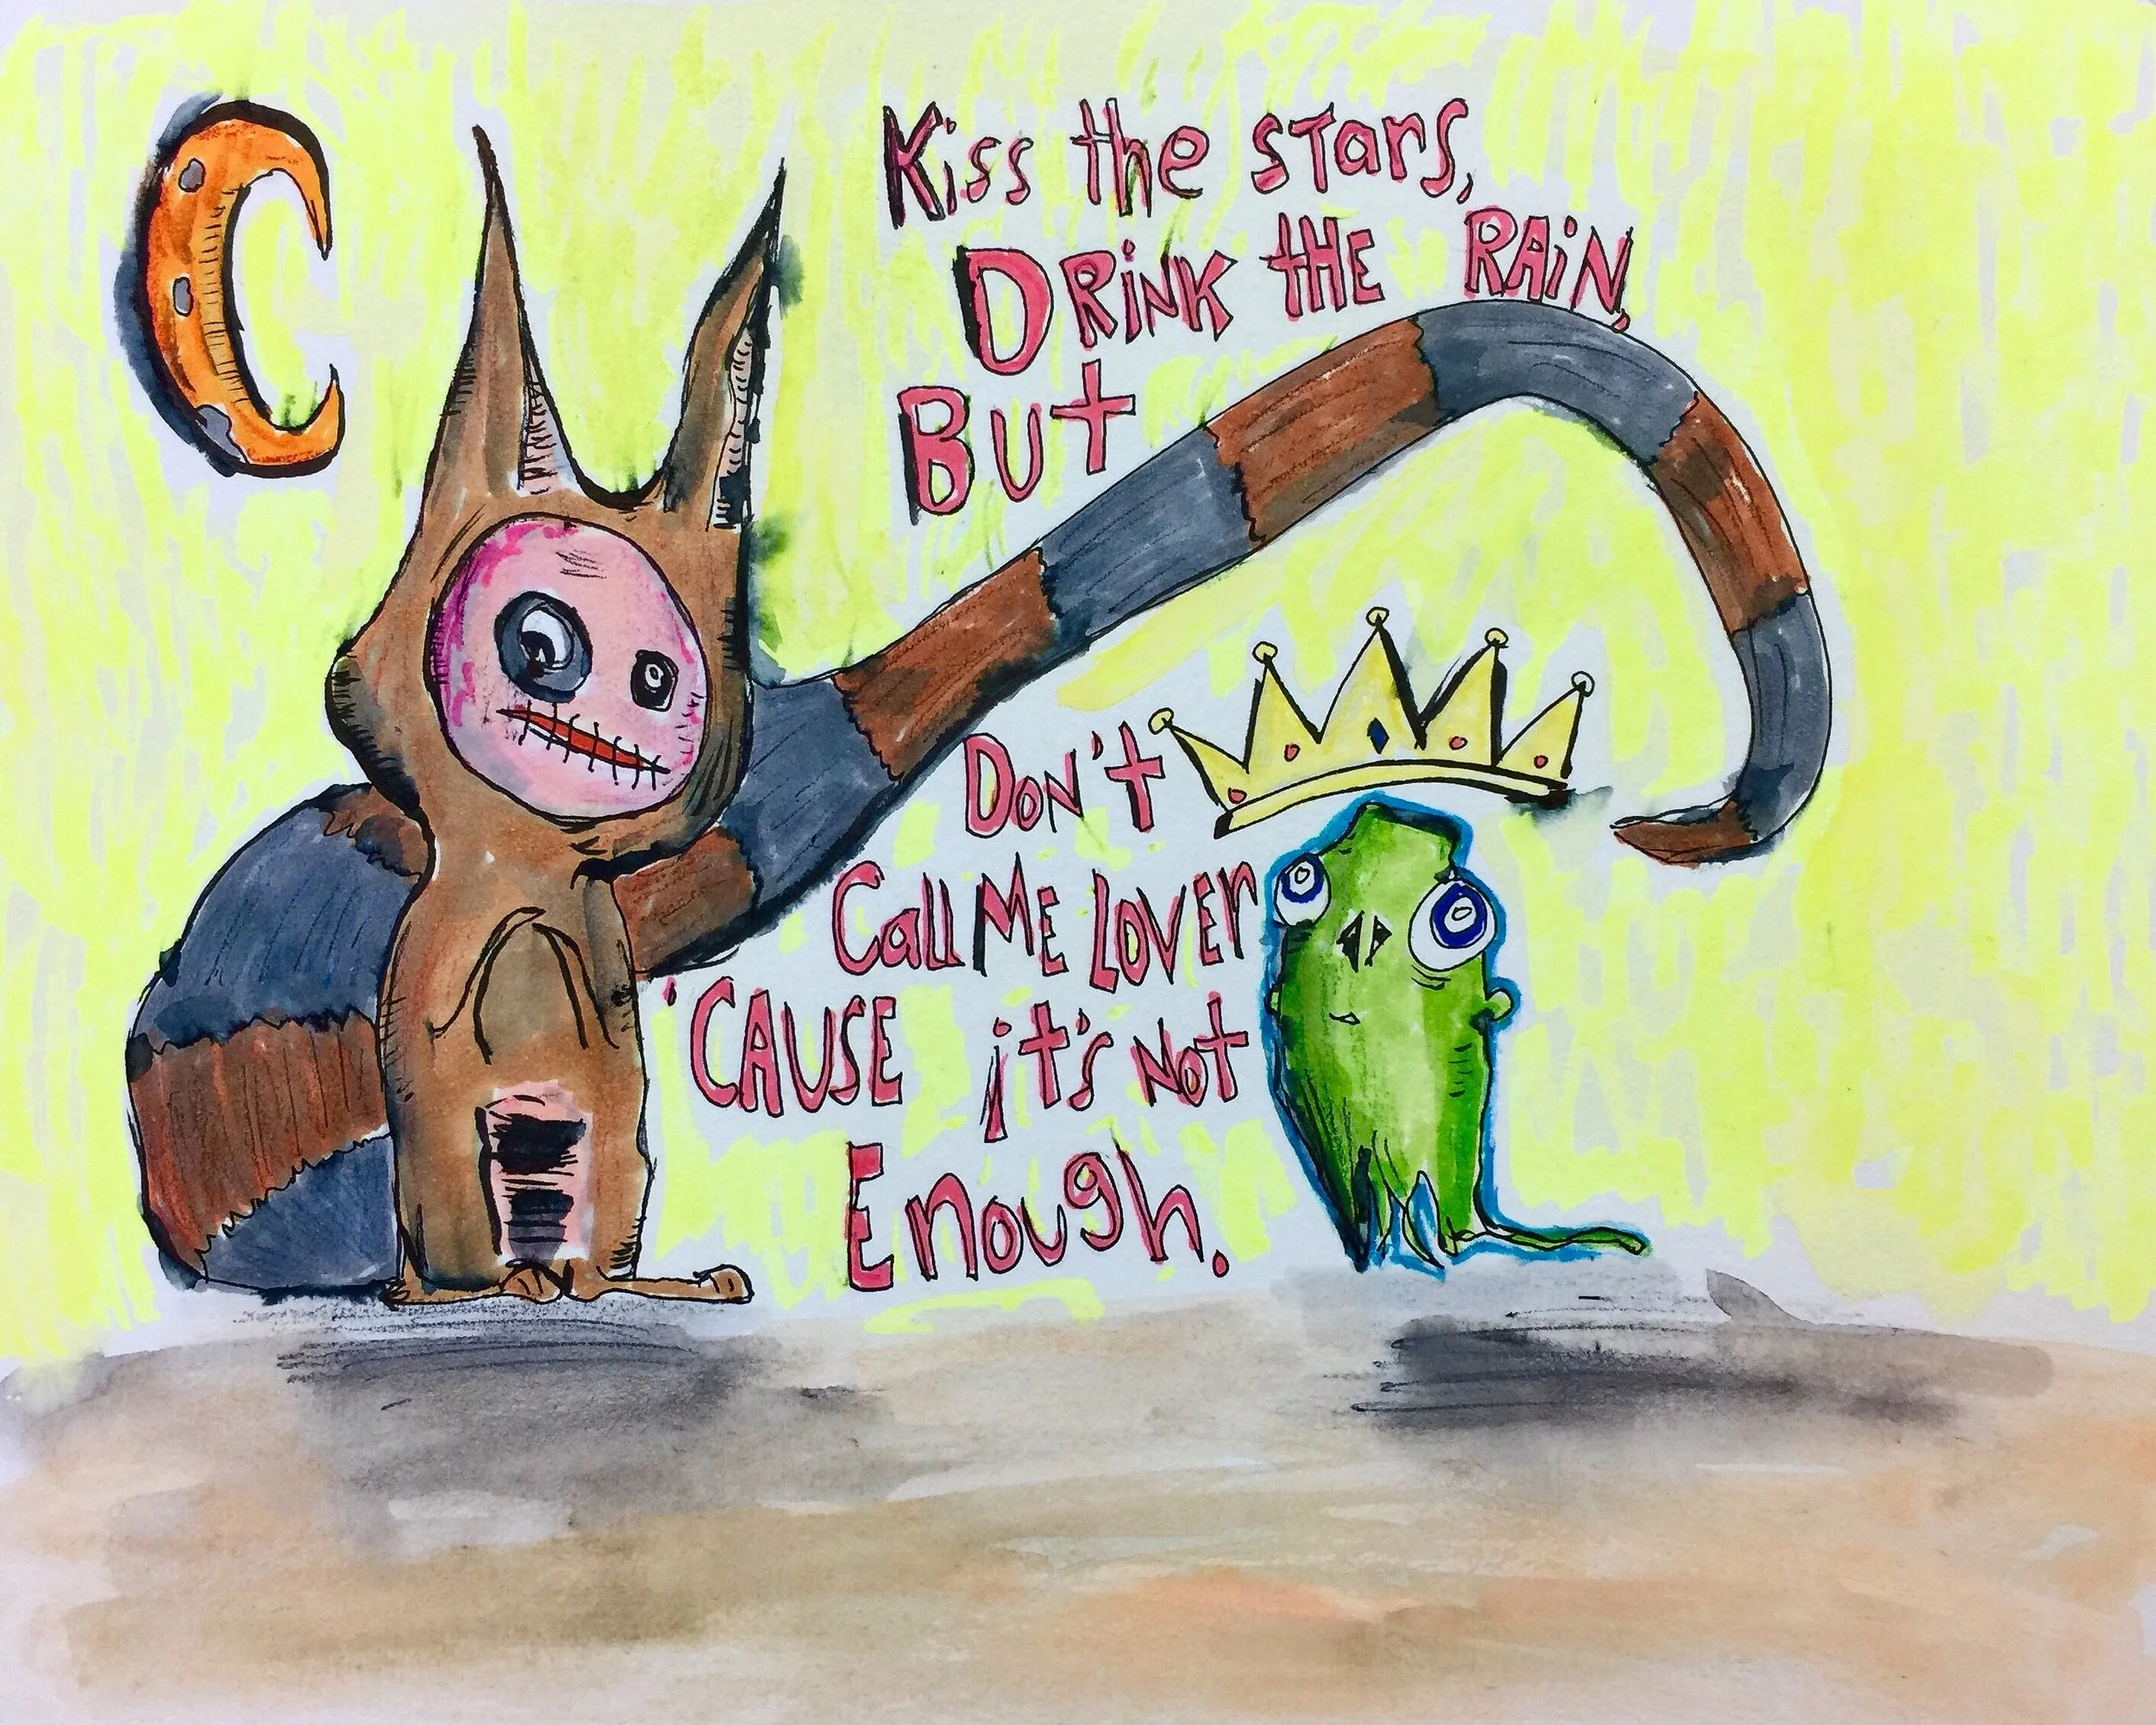 Kiss the stars,
DRiNK tHE RAiN,
But
Don't
Call ME LOVEr
'CAUSE it's Not
Enough.